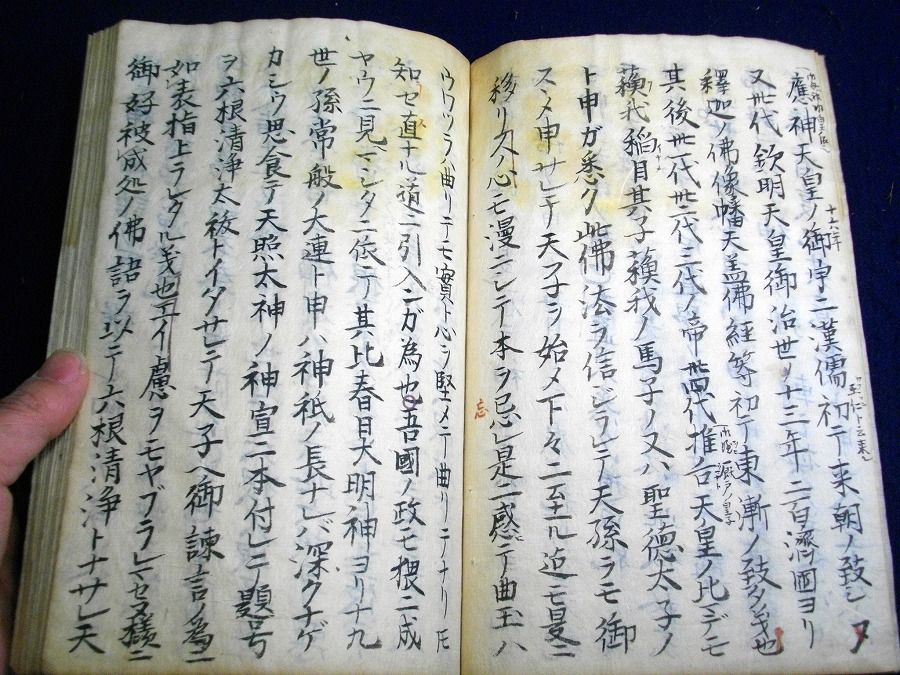 應神天皇ノ御宇ニ漢儒初テ来朝ノ致シ又
十六年
又卅代欽明天皇御治世ノ十三年ニ百濟國ヨリ
釋迦ノ佛像幡天盖佛経等初テ東漸ノ致タ義也
其後卅一代卅二代三代ノ帝卅四代推古天皇ノ比マデモ
厩戸ノ皇子
蘓我稲目其子蘓我ノ馬子ノ又ハ聖徳太子ノ
ト申ガ悉ク此佛法ヲ信ジラレテ天孫ヲモ御
スヽメ申サレテ天子ヲ始メ下々ニ至ル迠モ是ニ
移リ人心モ漫ニシテ本ヲ忌レ是ニ惑テ曲玉ハ
忘
ウツラノ曲リテモ實ト心ヲ堅メテ曲リニナリ凡
知セ直ナル道ニ引入ンガ為也吾國ノ政モ猥ニ成
ヤウニ見マシタニ依テ其比春日大明神ヨリ十九
世ノ孫常般ノ大連ト申ハ神祇ノ長ナレバ深クナゲ
カシウ思食テ天照太神ノ神宣ニ本付レテノ題号
ヲ六根清浄太祓トイタサレテ天子ヘ御諫言ノ為ニ
如表指上ラレタル義也
慮ヲモヤブラレマセヌ様ニ
御好被成処ノ佛語ヲ以テ六根清浄トナサレ天